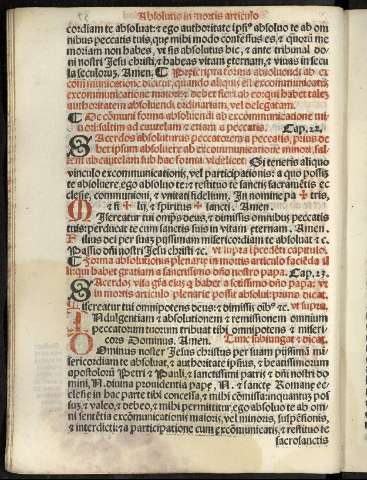 Absolutio in mortis articulo
cordiam te absoluat: & ego authoritate ipsiꝰ absoluo te ab om
nibus peccatis tuis, que mihi modo confessus es, & quorū me
moriam non habes, vt sis absolutus hic, & ante tribunal do
mini nostri Jesu christi, & habeas vitam eternam, & viuas in secu
la seculorum. Amen. ¶ Prescripta forma absoluendi ab ex
communicatione
excommunicatione maiore, debet fieri ab eo qui habet talem
authoritatem absoluendi ordinariam, vel delegatam.
¶ De cōmuni forma absoluendi ab excōmunicatione mi
nori: saltim ad cautelam: & etiam a peccatis. Cap. 22.
Sacerdos absoluturus peccatorem a peccatis, prius de
bet ipsum absoluere ab excommunicatione minori, sal
tem ad cautelam sub hac forma videlicet. Si teneris aliquo
vinculo excommunicationis, vel participationis: a quo possū
te absoluere, ego absoluo te: & restituo te sanctis sacramētis ec
clesie, communioni, & vnitati fidelium. In nomine pa ✠ tris,
& fi ✠ lij, & spiritus ✠ sancti. Amen.
Misereatur tui omnipotens deus, & dimissis omnibus peccatis
tuis: perducat te cum sanctis suis in vitam eternam. Amen.
Filius dei per suam pijssimam misericordiam te absoluat &c.
Passio dn̄i nostri Jesu christi &c. vt supra in precedēti capitulo.
¶ Forma absolutionis plenarie in mortis articulo faciēda il
li qui habet gratiam a sanctissimo dn̄o nostro papa. Cap. 23.
Sacerdos
in mortis articulo plenarie possit absolui: primo dicat.
Misereatur tui omnipotens deus: & dimissis oībꝰ &c. vt supra.
Indulgentiam & absolutionem & remissionem omnium
peccatorum tuorum tribuat tibi omnipotens & miseri
cors Dominus. Amen. Tunc subiungat & dicat.
Dominus noster Jesus christus per suam pijssimā mi
sericordiam te absoluat, & authoritate ipsius, & beatissimorum
apostolorū Petri & Pauli, & sanctissimi patris & dn̄i nostri do
mini, N. diuina prouidentia pape, N. & sancte Romane ec
clesie in hac parte tibi concessa, & mihi cōmissa: inquantum pos
sum, & valeo, & debeo, & mihi permittitur, ego absoluo te ab om
ni sentētia excōmunicationis maioris, vel minoris, suspēsionis,
& interdicti: & a participatione cum excōmunicatis, & restituo te
sacrosanctis